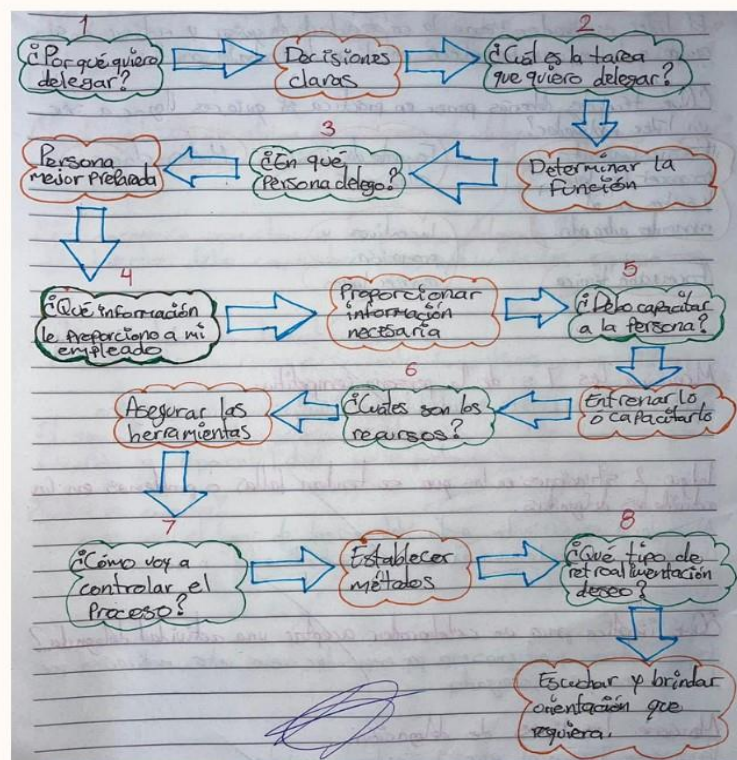 1
¿Por qué quiero
delegar?
Decisiones
claras
2
¿Cuál es la tarea
que quiero delegar?
Determinar la
función
3
¿En qué
Persona delego?
Persona
mejor preparada
4
¿Qué información
le proporciono a mi
empleado
Proporcionar
información
necesaria
5
¿Debo capacitar
a la persona?
Entrenarlo
o capacitarlo
6
¿Cuáles son los
recursos?
Asegurar las
herramientas
7
¿Cómo voy a
controlar el
Proceso?
Establecer
métodos
8
¿Qué tipo de
retroalimentación
deseo?
Escuchar y brindar
orientación que
requiera.